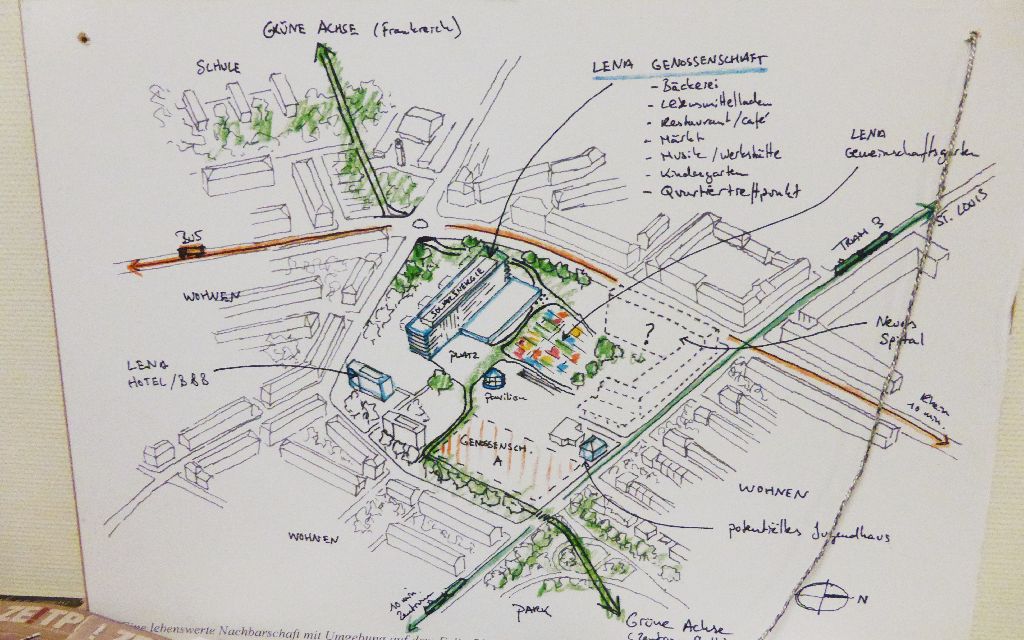 GRÜNE ACHSE (Frankreich)
SCHULE
LENA GENOSSENSCHAFT
- Bäckerei
- Lebensmittelladen
- Restaurant/café
- Märkt
- Musik/Werkstätte
- Kindergarten
- Quartiertreffpunkt
LENA
Gemeinschaftsgarten
ST. LOUIS
TRAM 3
BUS
WOHNEN
SOLARENERGIE
?
Neues
Spital
PLATZ
LENA
HOTEL/B&B
pavillon
Rhein
10 min.
GENOSSENSCH.
A
WOHNEN
potentielles Jugendhaus
WOHNEN
10 min
Zentrum
PARK
N
Grüne Achse
ZEITP
Eine lebenswerte Nachbarschaft mit Umgebung auf dem